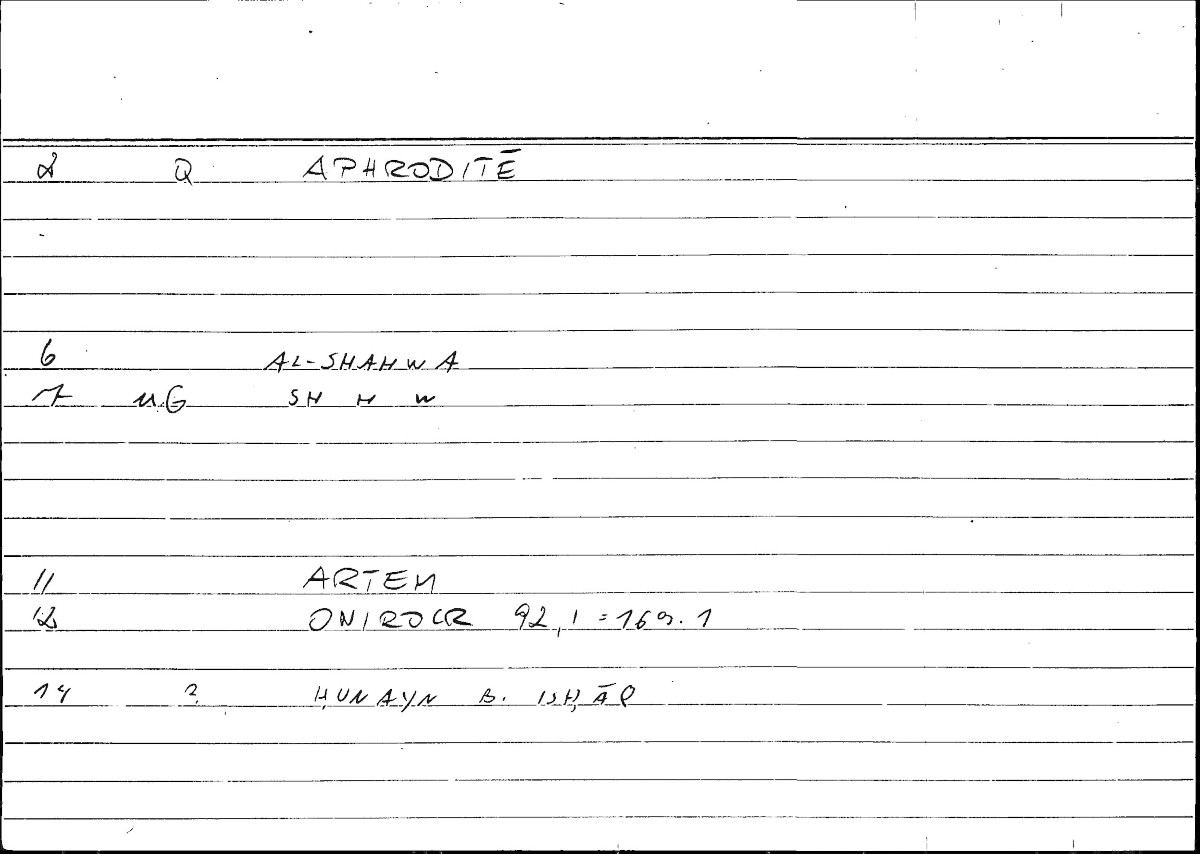 2 Q APHRODITĒ
6 AL-SHAHWA
7 MG SH H W
11 ARTEM
12 ONIROCR 92,1=169.1
14 ? ḤUNAYN B. ISḤĀQ